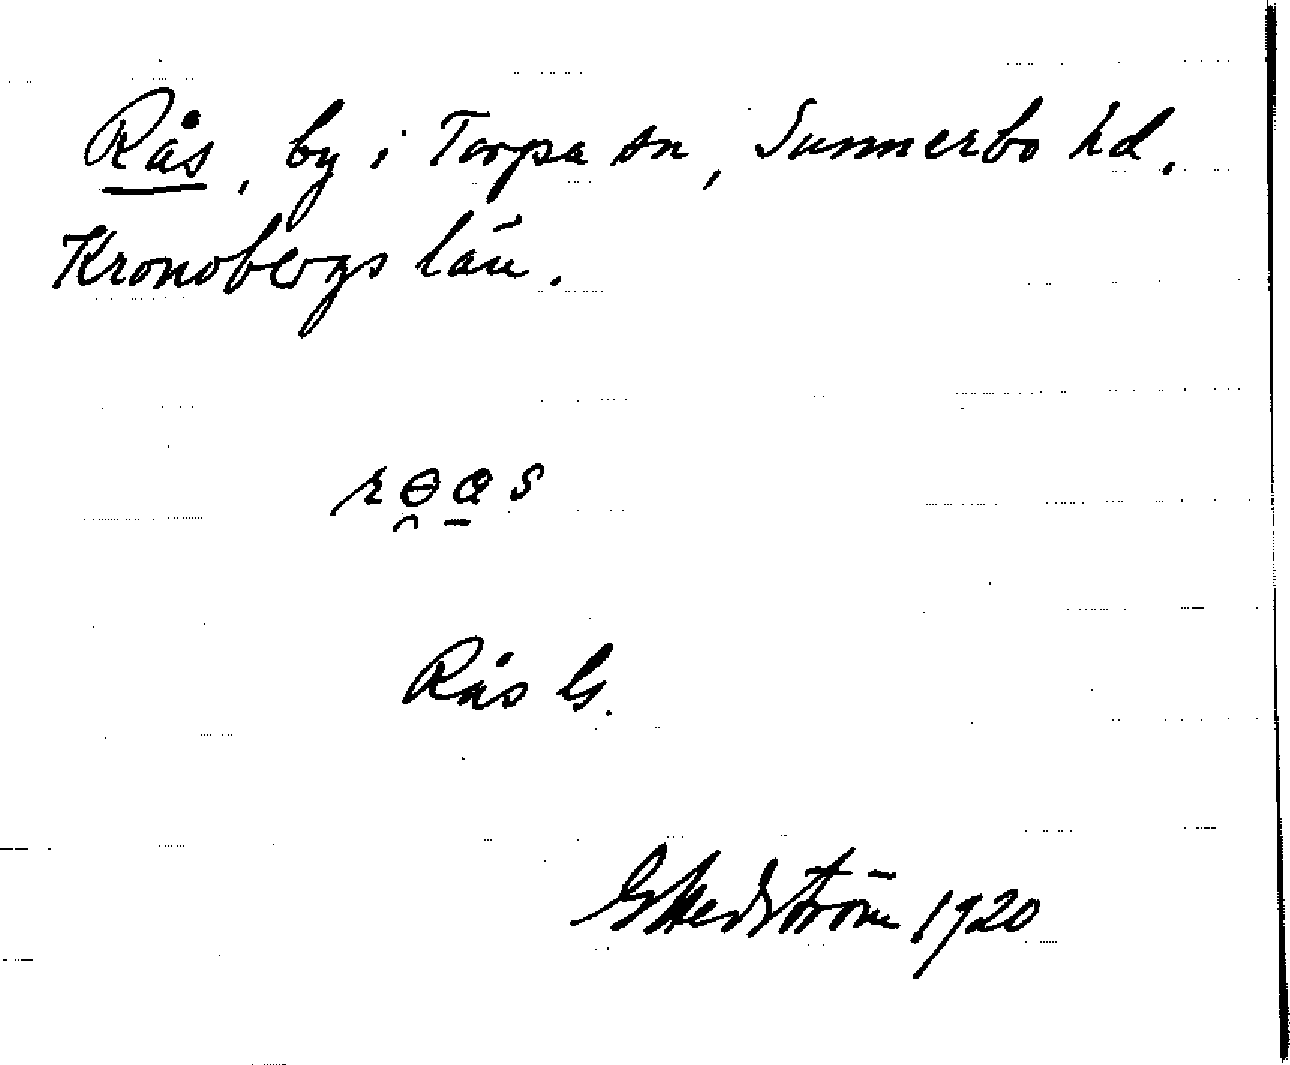 Rås, by i Torpa sn, Sunnerbo hd.
Kronobergs län.
Rås G.
G Hedström 1920